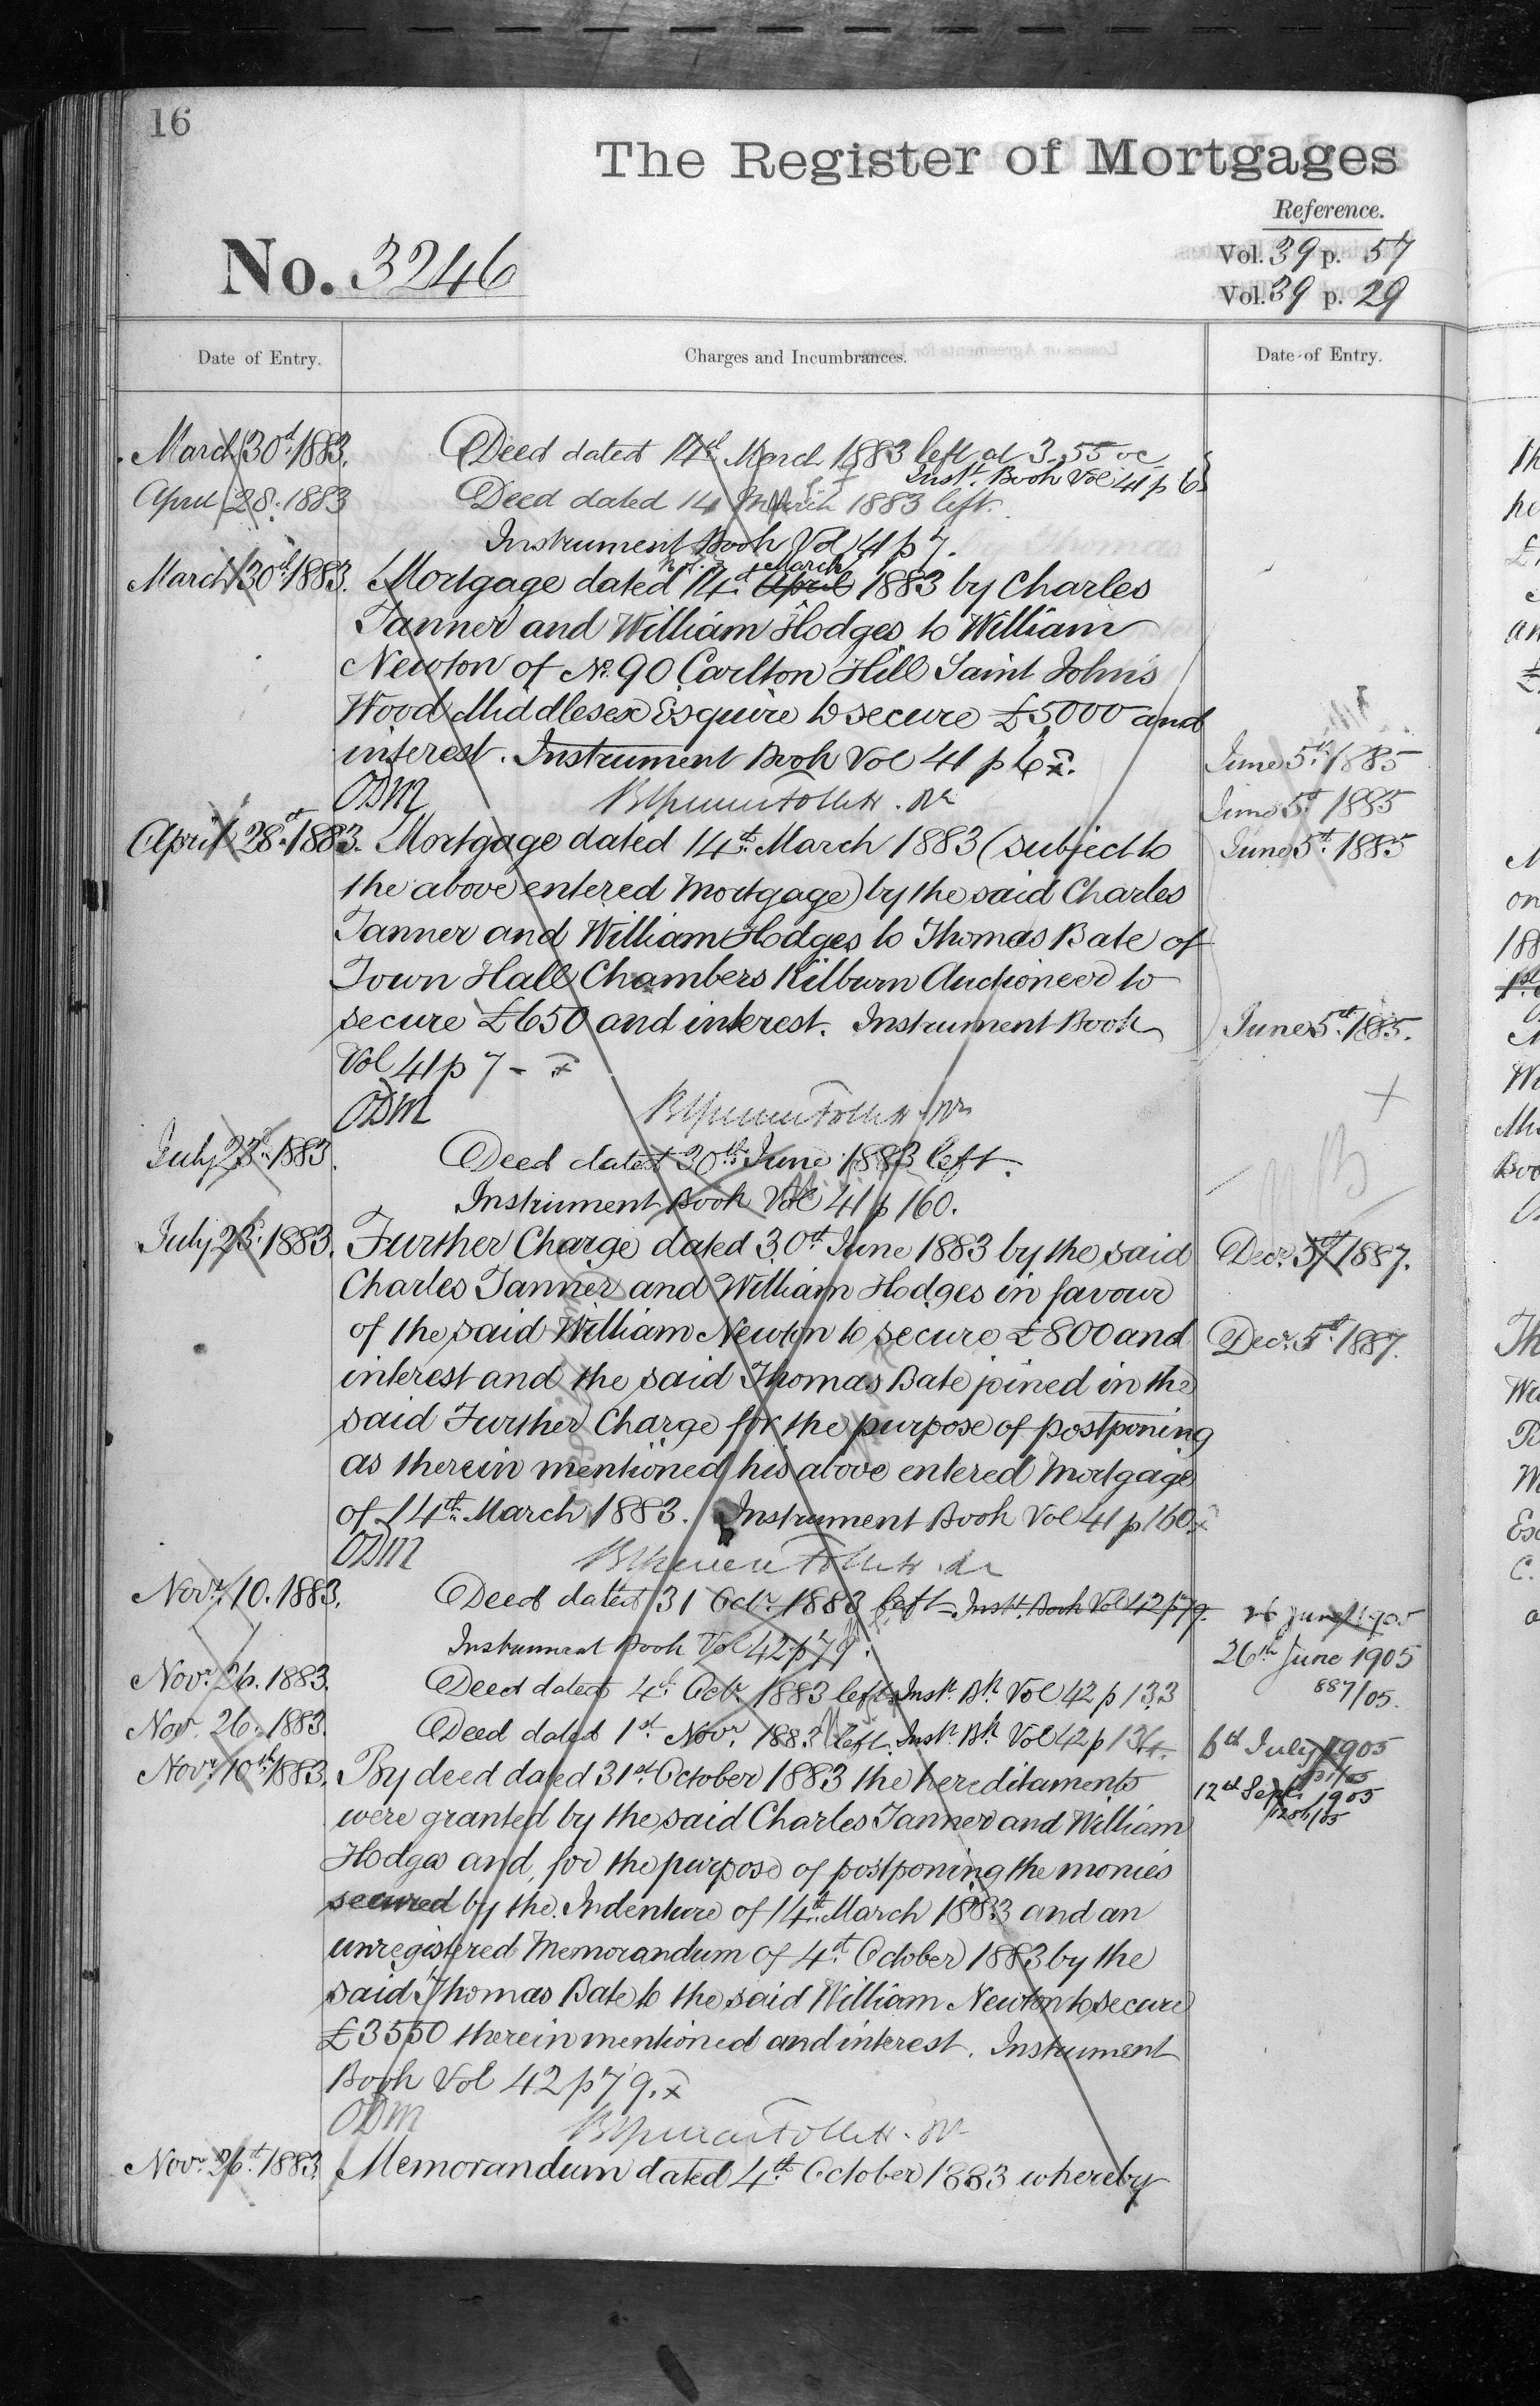 16
The Register of Mortgages
Reference.
No. 3246
Vol. 39 p. 57
Vol. 39 p. 29
Date of Entry.
Charges and Incumbrances.
Date of Entry.
March 30th 1883.
Deed dated 14th March 1883 left at 3.55 oc
Inst. Book Vol 41 p 6
April 28. 1883
Deed dated 14 March 1883 left.
Instrument Book Vol 41 p 7.
March
March 30th 1883. Mortgage dated 14th April 1883 by Charles
Tanner and William Hodges to William
Newton of No. 90 Carlton Hill Saint Johns
Wood Middlesex Esquire to secure £5000 and
interest. Instrument Book Vol 41 p 6 x.
ODM
April 28th 1883. Mortgage dated 14th March 1883 (subject to
the above entered Mortgage) by the said Charles
Tanner and William Hodges to Thomas Bate of
Town Hall Chambers Kilburn Auctioneer to
secure £650 and interest. Instrument Book
Vol 41 p 7 - x
ODM
July 23. 1883.
Deed dated 30th June 1883 left.
Instrument Book Vol 41 p 160.
July 23. 1883. Further Charge dated 30th June 1883 by the said
Charles Tanner and William Hodges in favour
of the said William Newton to secure £800 and
interest and the said Thomas Bate joined in the
said Further Charge for the purpose of postponing
as therein mentioned his above entered Mortgage
of 14th March 1883. Instrument Book Vol 41 p 160. x
ODM
Novr. 10. 1883.
Deed dated 31 Octr. 1883 left Inst. Book Vol 42 p 79.
Instrument Book Vol 42 p 79.
Novr. 26. 1883.
Deed dated 4th Octr. 1883 left Inst. Bk. Vol 42 p 133
Nov. 26. 1883.
Deed dated 1st Novr. 1883 left. Inst. Bk. Vol 42 p 134.
Novr. 10th 1883. By deed dated 31st October 1883 the hereditaments
were granted by the said Charles Tanner and William
Hodges and for the purpose of postponing the monies
secured by the Indenture of 14th March 1883 and an
unregistered Memorandum of 4th October 1883 by the
said Thomas Bate to the said William Newton to secure
£3550 therein mentioned and interest. Instrument
Book Vol 42 p 79. x
ODM
Novr. 26th 1883. Memorandum dated 4th October 1883 whereby
June 5th 1885
June 5th 1885
June 5th 1885
June 5th 1885.
x
Decr. 5th 1887.
Decr. 5th 1887.
26 June 1905
26th June 1905
887/05.
6th July 1905
12th Sept. 1905